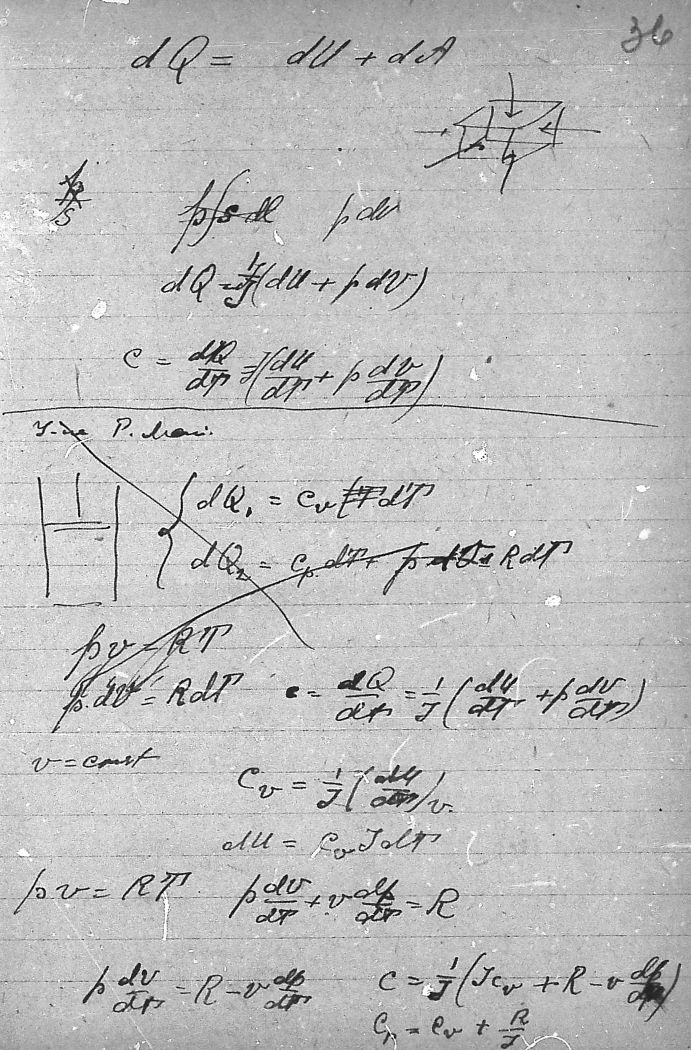 36
dQ = dU + dA
p∫s dl p dv
dQ = 1/J (dU + p dV)
c = dQ/dT = 1/J (dU/dT + p dv/dT)
{ dQ₁ = c_v dT
dQ₂ = c_p dT + p dv = R dT
pv = RT
p dv = R dT c = dQ/dT = 1/J (dU/dT + p dv/dT)
v = const
C_v = 1/J (dU/dT)_v
dU = c_v J dT
pv = RT p dv/dT + v dp/dT = R
p dv/dT = R – v dp/dT C = 1/J (J c_v + R – v dp/dT)
C_p = c_v + R/J